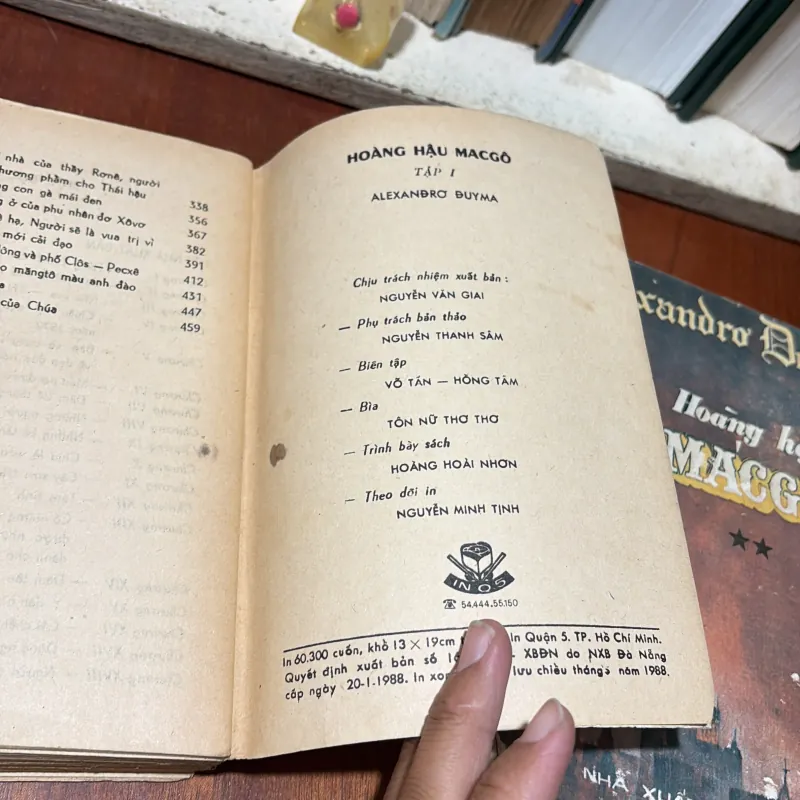 nhà của thầy Rơnê, người
hương phẩm cho Thái hậu 338
con gà mái đen 356
ở của phu nhân đơ Xôvơ 367
hạ, Người sẽ là vua trị vì 382
mới cải đạo 391
và phố Clôs — Pecxê 412
măngtô màu anh đào 431
447
của Chúa 459
HOÀNG HẬU MACGÔ
TẬP I
ALEXANĐRƠ ĐUYMA
Chịu trách nhiệm xuất bản :
NGUYỄN VĂN GIAI
— Phụ trách bản thảo
NGUYỄN THANH SÂM
— Biên tập
VÕ TẤN — HỒNG TÂM
— Bìa
TÔN NỮ THƠ THƠ
— Trình bày sách
HOÀNG HOÀI NHƠN
— Theo dõi in
NGUYỄN MINH TỊNH
IN Q5
☎ 54.444.55.150
In 60.300 cuốn, khổ 13 × 19cm In Quận 5. TP. Hồ Chí Minh.
Quyết định xuất bản số XBĐN do NXB Đà Nẵng
cấp ngày 20-1-1988. In lưu chiểu tháng 5 năm 1988.
xandrơ
Hoàng
MACG
★★
NHÀ